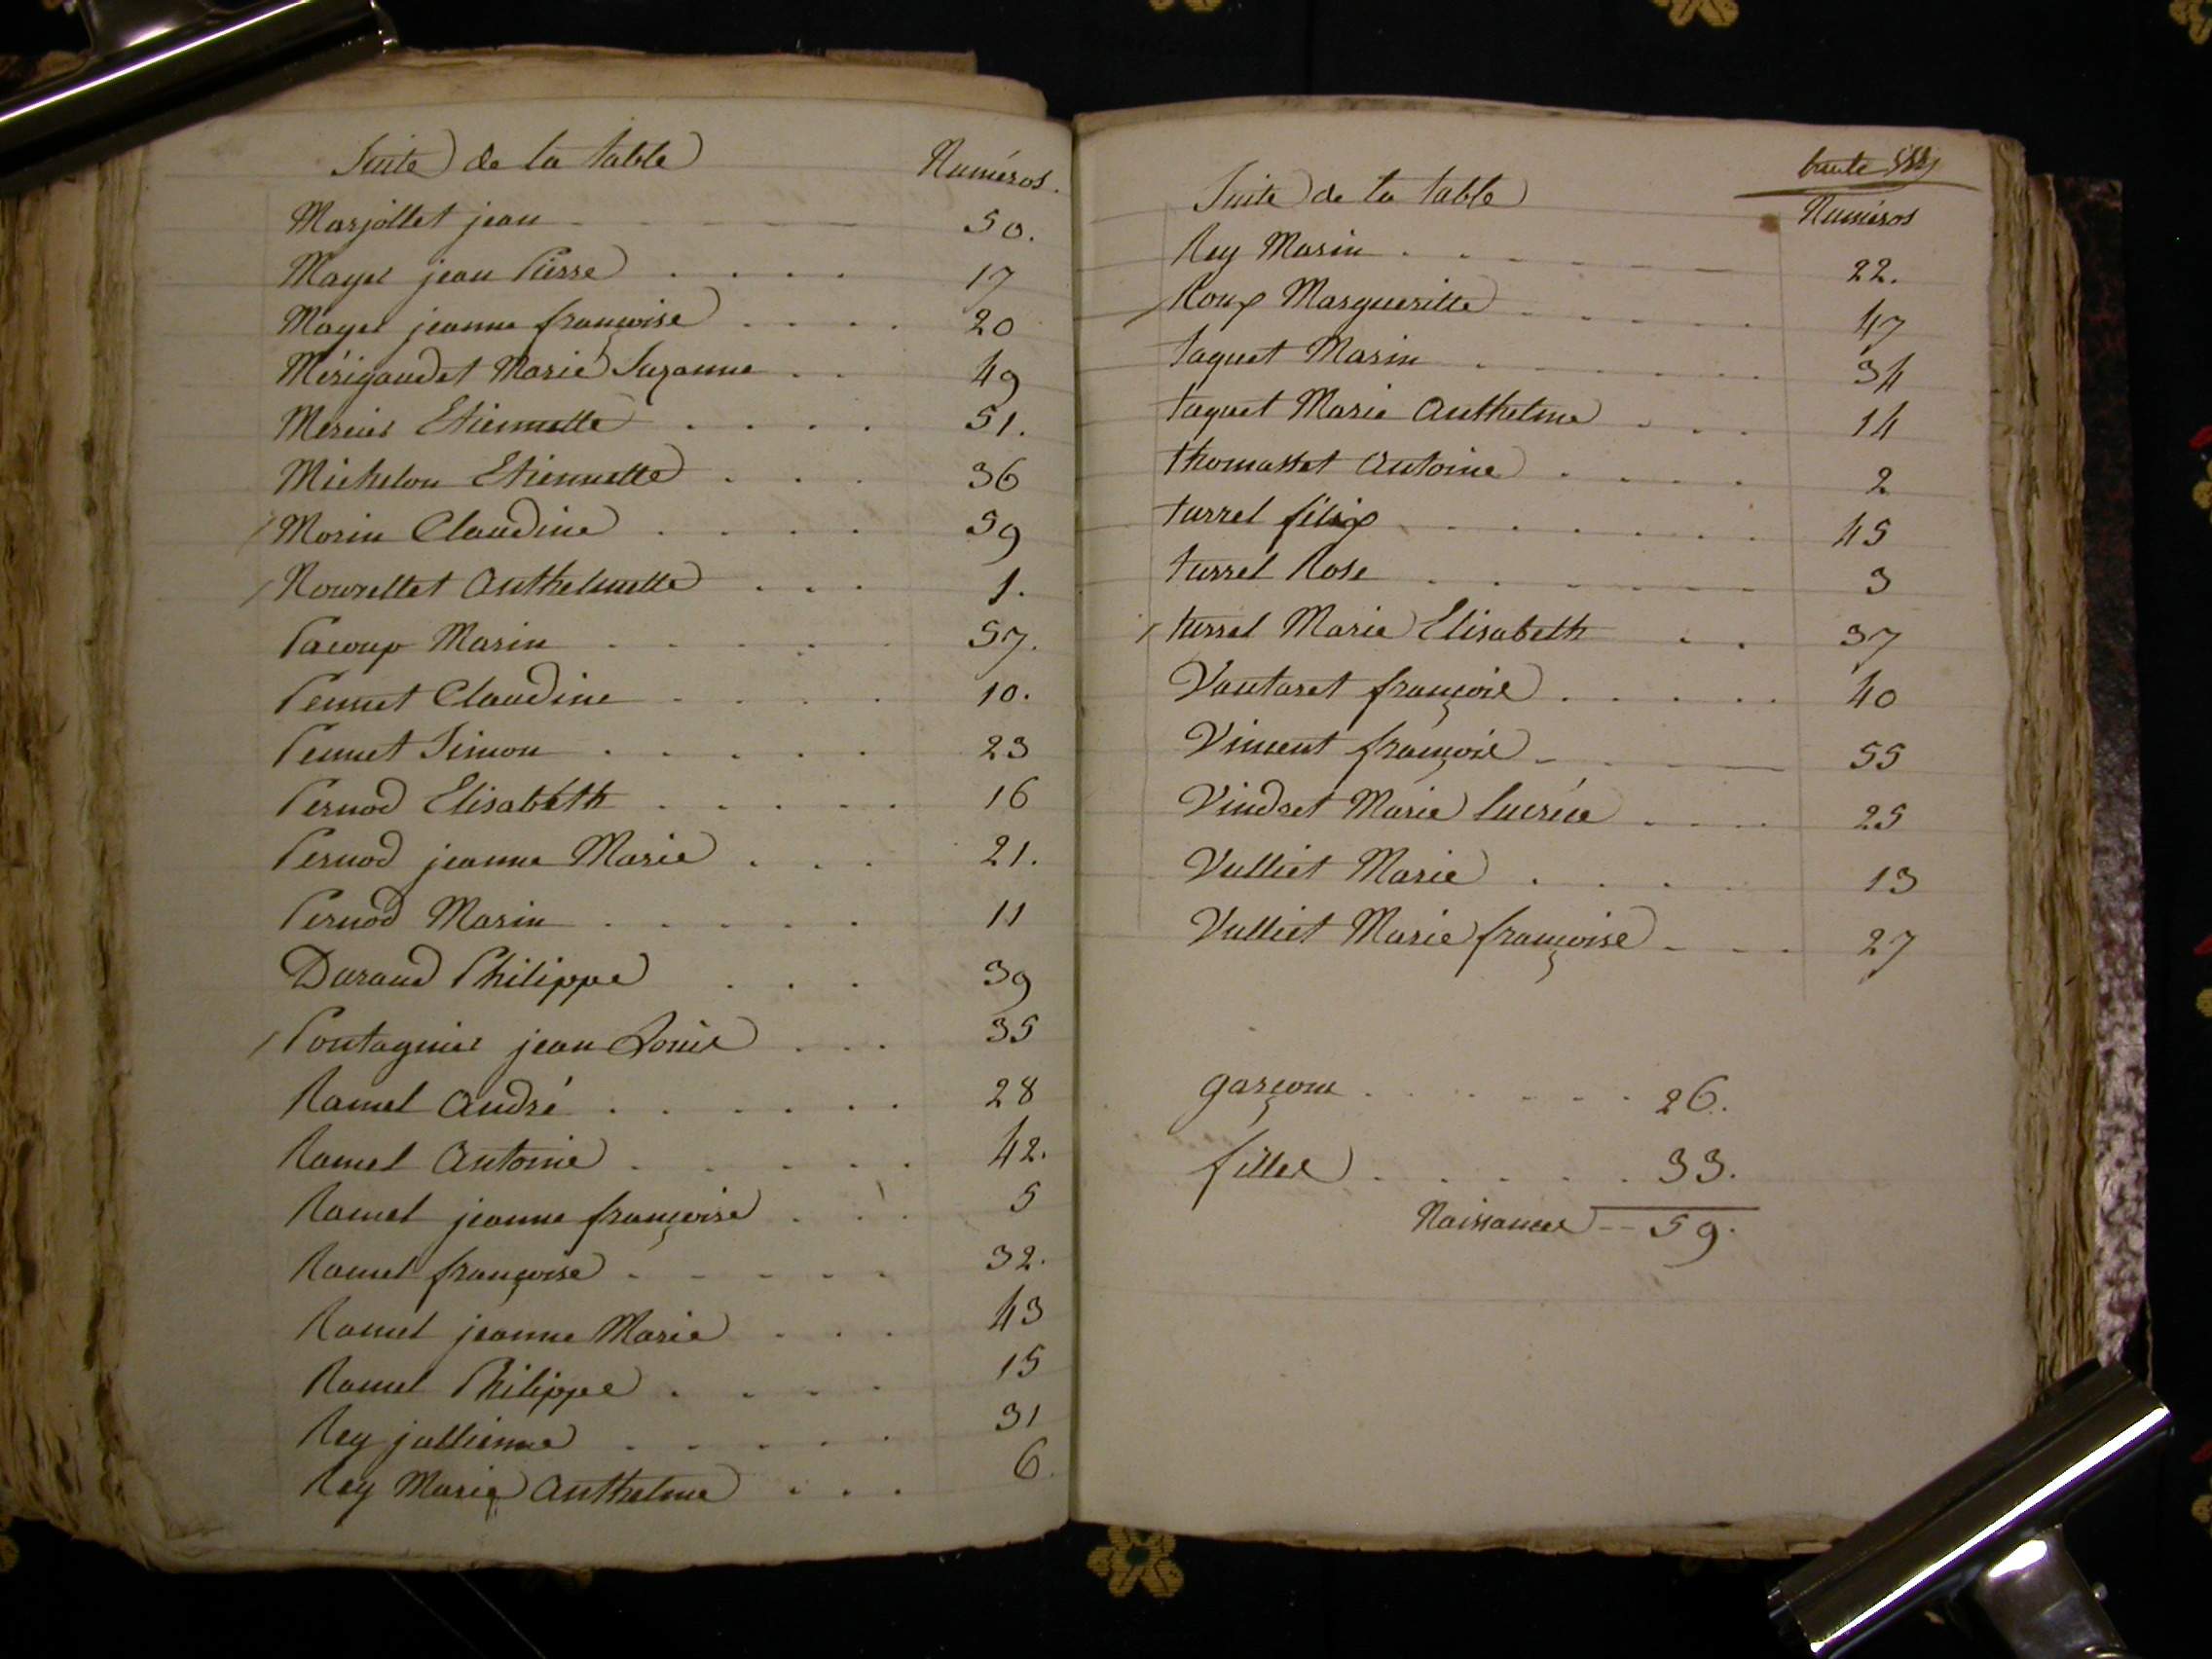 Suite de la table
Numéros.
Marjollet jean 50.
Mayer jean Pierre 17
Mayer jeanne françoise 20
Mérigaudet Marie Suzanne 49
Mercier Etiennette 51.
Michelon Etiennette 36
Morin Claudine 59
Nourellet Anthelmette 1.
Pacoup Marin 57.
Pennet Claudine 10.
Pennet Simon 23
Pernod Elisabeth 16
Pernod jeanne Marie 21.
Pernod Marin 11
Durand Philippe 39
Pontagnier jean Louis 35
Ramel André 28
Ramel Antoine 42.
Ramel jeanne françoise 5
Ramel françoise 32.
Ramel jeanne Marie 43
Ramel Philippe 15
Rey jullienne 31
Rey Marie Anthelme 6.
Suite de la table
Numéros
Rey Marin 22.
Roux Margueritte 47
taquet Marin 34
taquet Marie Anthelme 14
thomasset Antoine 2
turrel félix 45
turrel Rose 3
turrel Marie Elisabeth 37
Vautaret françois 40
Vincent françois 55
Vindret Marie lucrèce 25
Vulliet Marie 13
Vulliet Marie françoise 27
garçons 26.
filles 33.
Naissances -- 59.